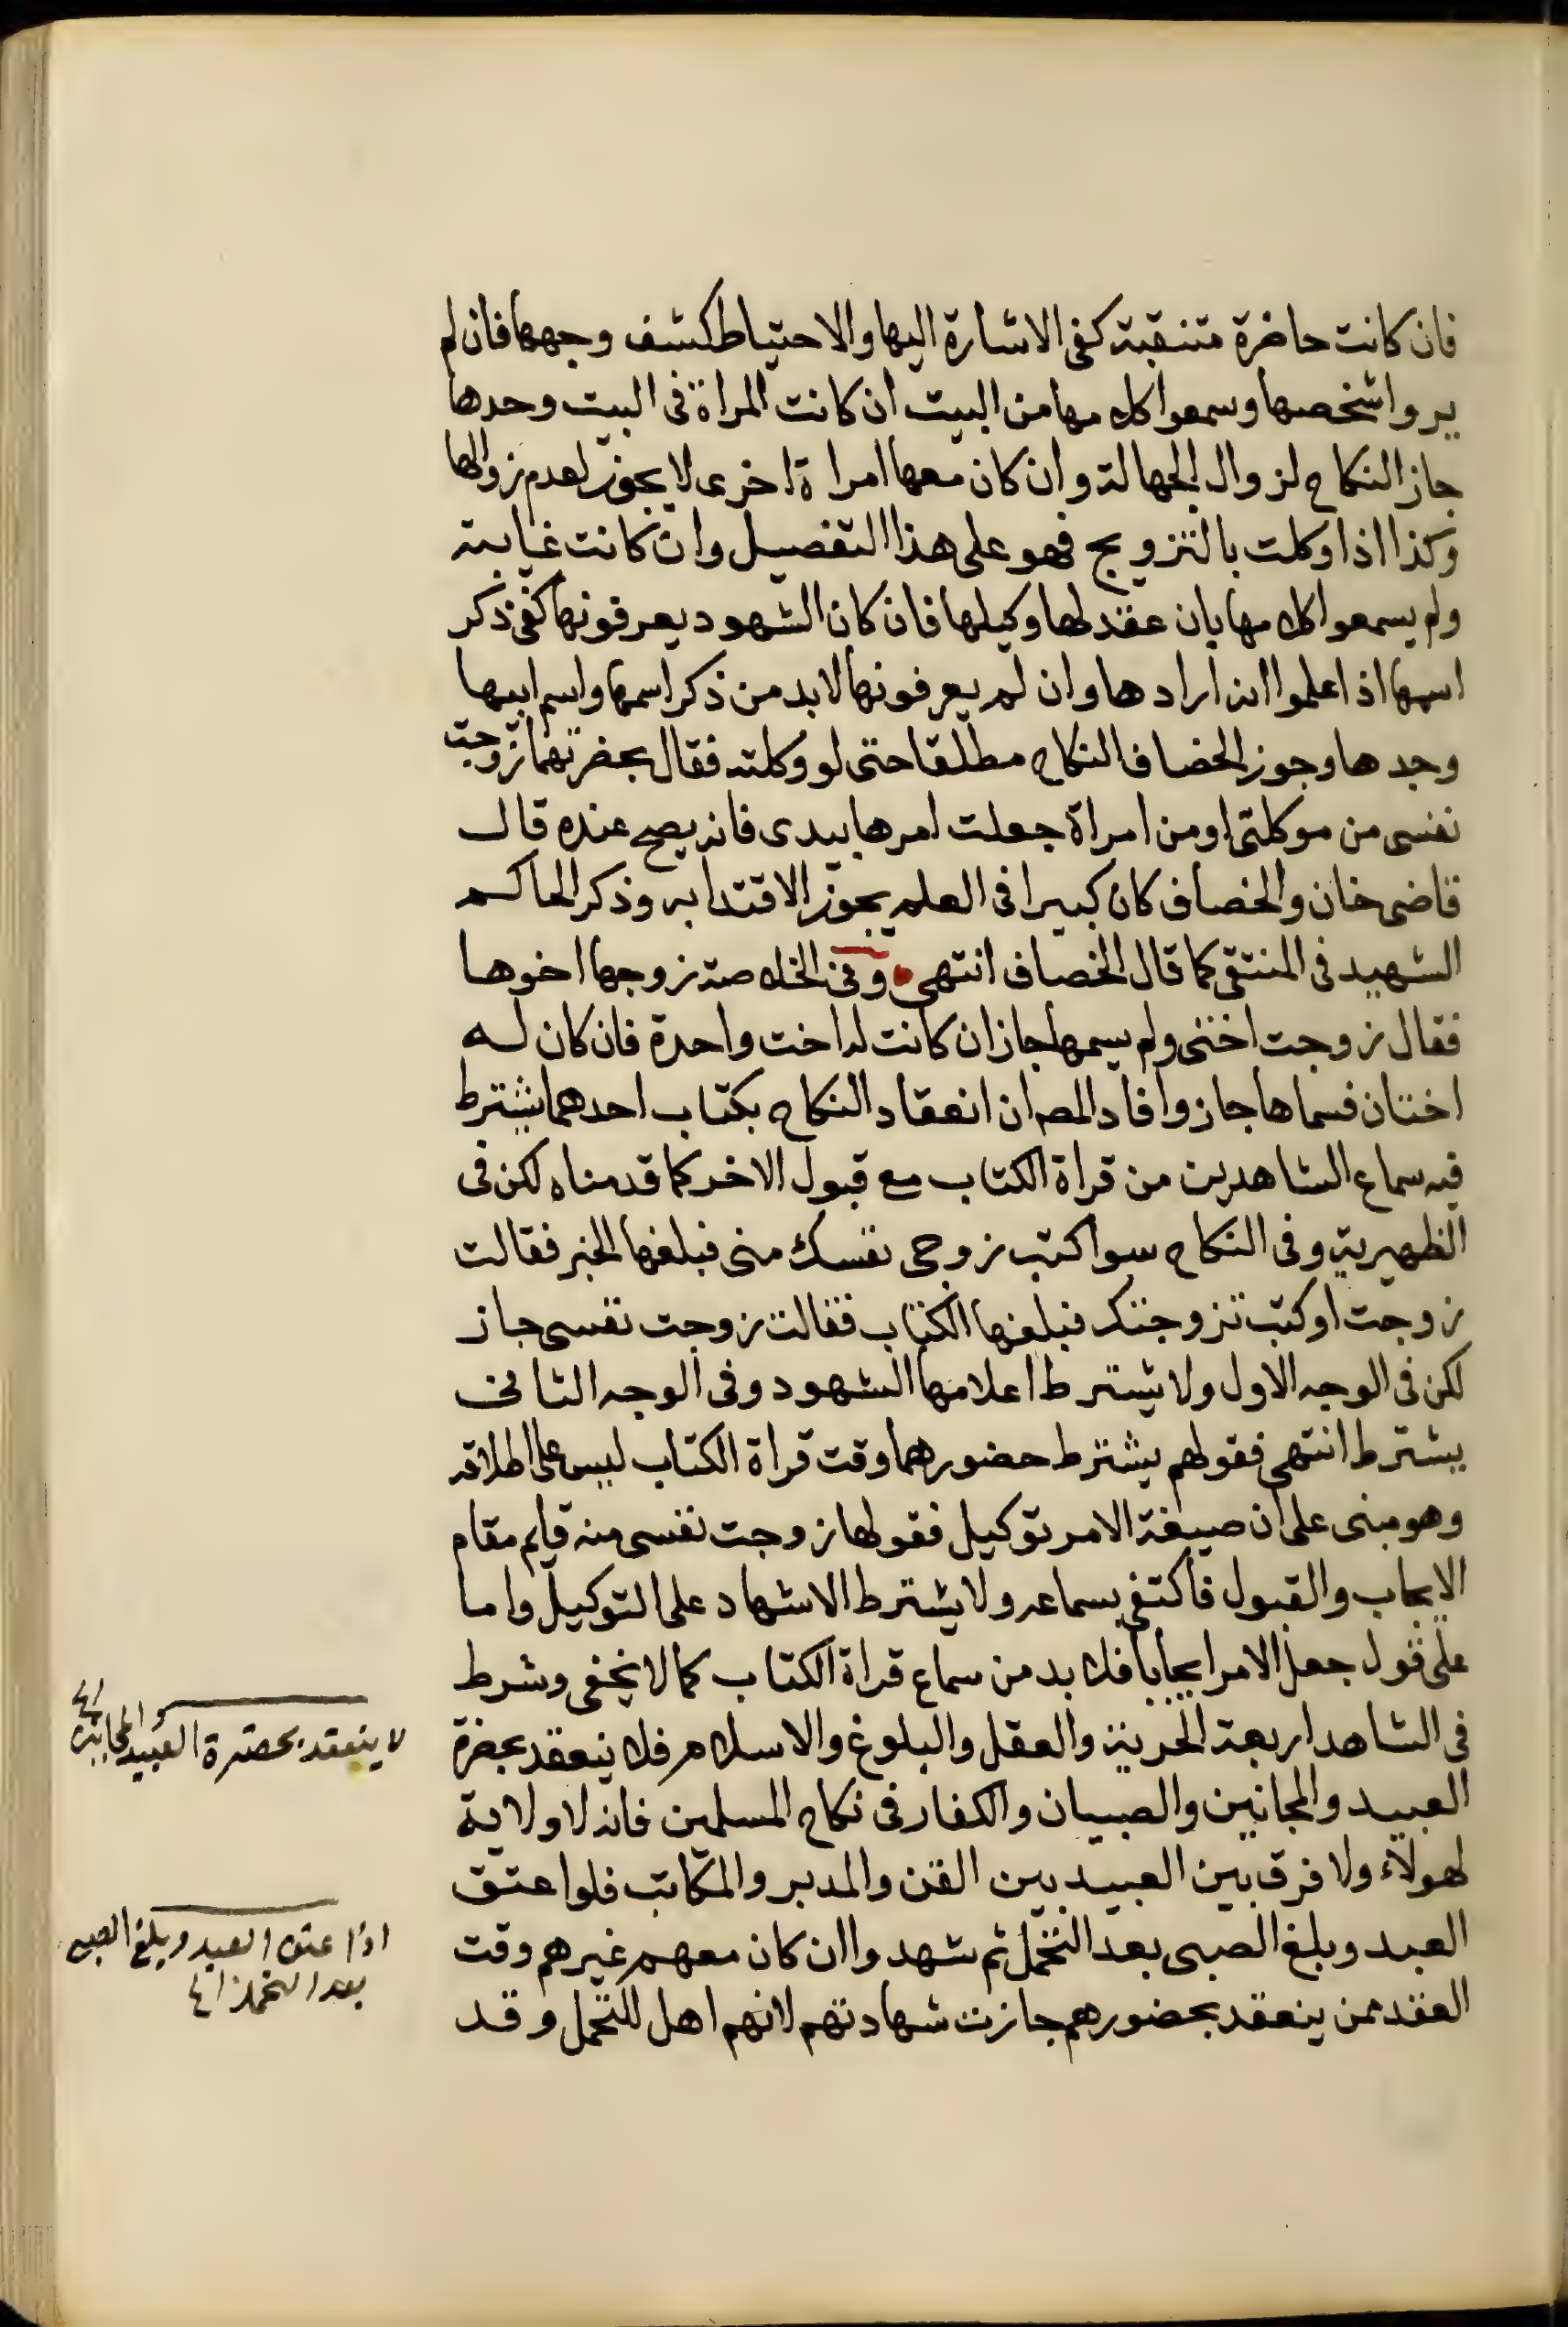 فان كانت حاضرة متنقبة كفى الاشارة اليها والاحتياط كشف وجهها فان لم
يروا شخصها وسمعوا كلامها من البيت ان كانت المراة فى البيت وحدها
جاز النكاح لزوال الجهالة وان كان معها امراة اخرى لا يجوز لعدم زوالها
وكذا اذا وكلت بالتزويج فهو على هذا التفصيل وان كانت غايبة
ولم يسمعوا كلامها بان عقد لها وكيلها فان كان الشهود يعرفونها كفى ذكر
اسمها اذا علموا انه ارادها وان لم يعرفونها لابد من ذكر اسمها واسم ابيها
وجدها وجوز الخصاف النكاح مطلقا حتى لو وكلته فقال بحضرتهما زوجت
نفسى من موكلتى او من امراة جعلت امرها بيدى فانه يصح عنده قال
قاضى خان والخصاف كان كبيرا فى العلم يجوز الاقتدا به وذكر الحاكم
الشهيد فى المنتقى كما قال الخصاف انتهى وفى الخلاصة زوجها اخوها
فقال زوجت اختى ولم يسمها جاز ان كانت له اخت واحدة فان كان له
اختان فسماها جاز وافاد المصـ ان انعقاد النكاح بكتاب احدهما يشترط
فيه سماع الشاهدين من قراة الكتاب مع قبول الاخر كما قدمناه لكن فى
الظهيرية وفى النكاح سوا كتب زوجى نفسك منى فبلغها الخبر فقالت
زوجت او كتب تزوجتك فبلغها الكتاب فقالت زوجت نفسى جاز
لكن فى الوجه الاول ولا يشترط اعلامها الشهود وفى الوجه الثانى
يشترط انتهى فقولهم يشترط حضورهما وقت قراة الكتاب ليس على اطلاقه
وهو مبنى على ان صيغة الامر توكيل فقولها زوجت نفسى منه قايم مقام
الايجاب والقبول فاكتفى بسماعه ولا يشترط الاشهاد على التوكيل واما
على قول جعل الامر ايجابا فلا بد من سماع قراة الكتاب كما لا يخفى وشرط
فى الشاهد اربعة الحرية والعقل والبلوغ والاسلام فلا ينعقد بحضرة
العبيد والمجانين والصبيان والكفار فى نكاح المسلمين فانه لا ولاية
لهولاء ولا فرق بين العبيد بين القن والمدبر والمكاتب فلو اعتق
العبد وبلغ الصبى بعد التحمل ثم شهدوا ان كان معهم غيرهم وقت
العقد ممن ينعقد بحضورهم جازت شهادتهم لانهم اهل للتحمل وقد
لا ينعقد بحضرة العبيد والمجانين
اذا عتق العبد وبلغ الصبى
بعد التحمل